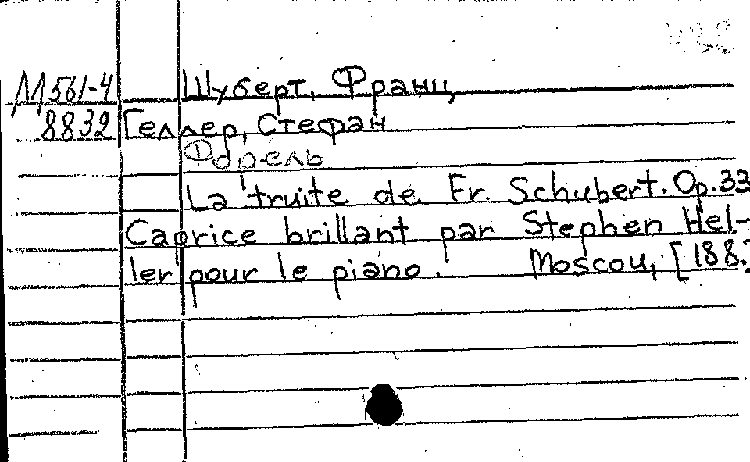 М561-4 Шуберт, Франц
8832 Геллер, Стефан
Форель
La truite de Fr. Schubert. Op. 33
Caprice brillant par Stephen Hel-
ler pour le piano. Moscou, [188